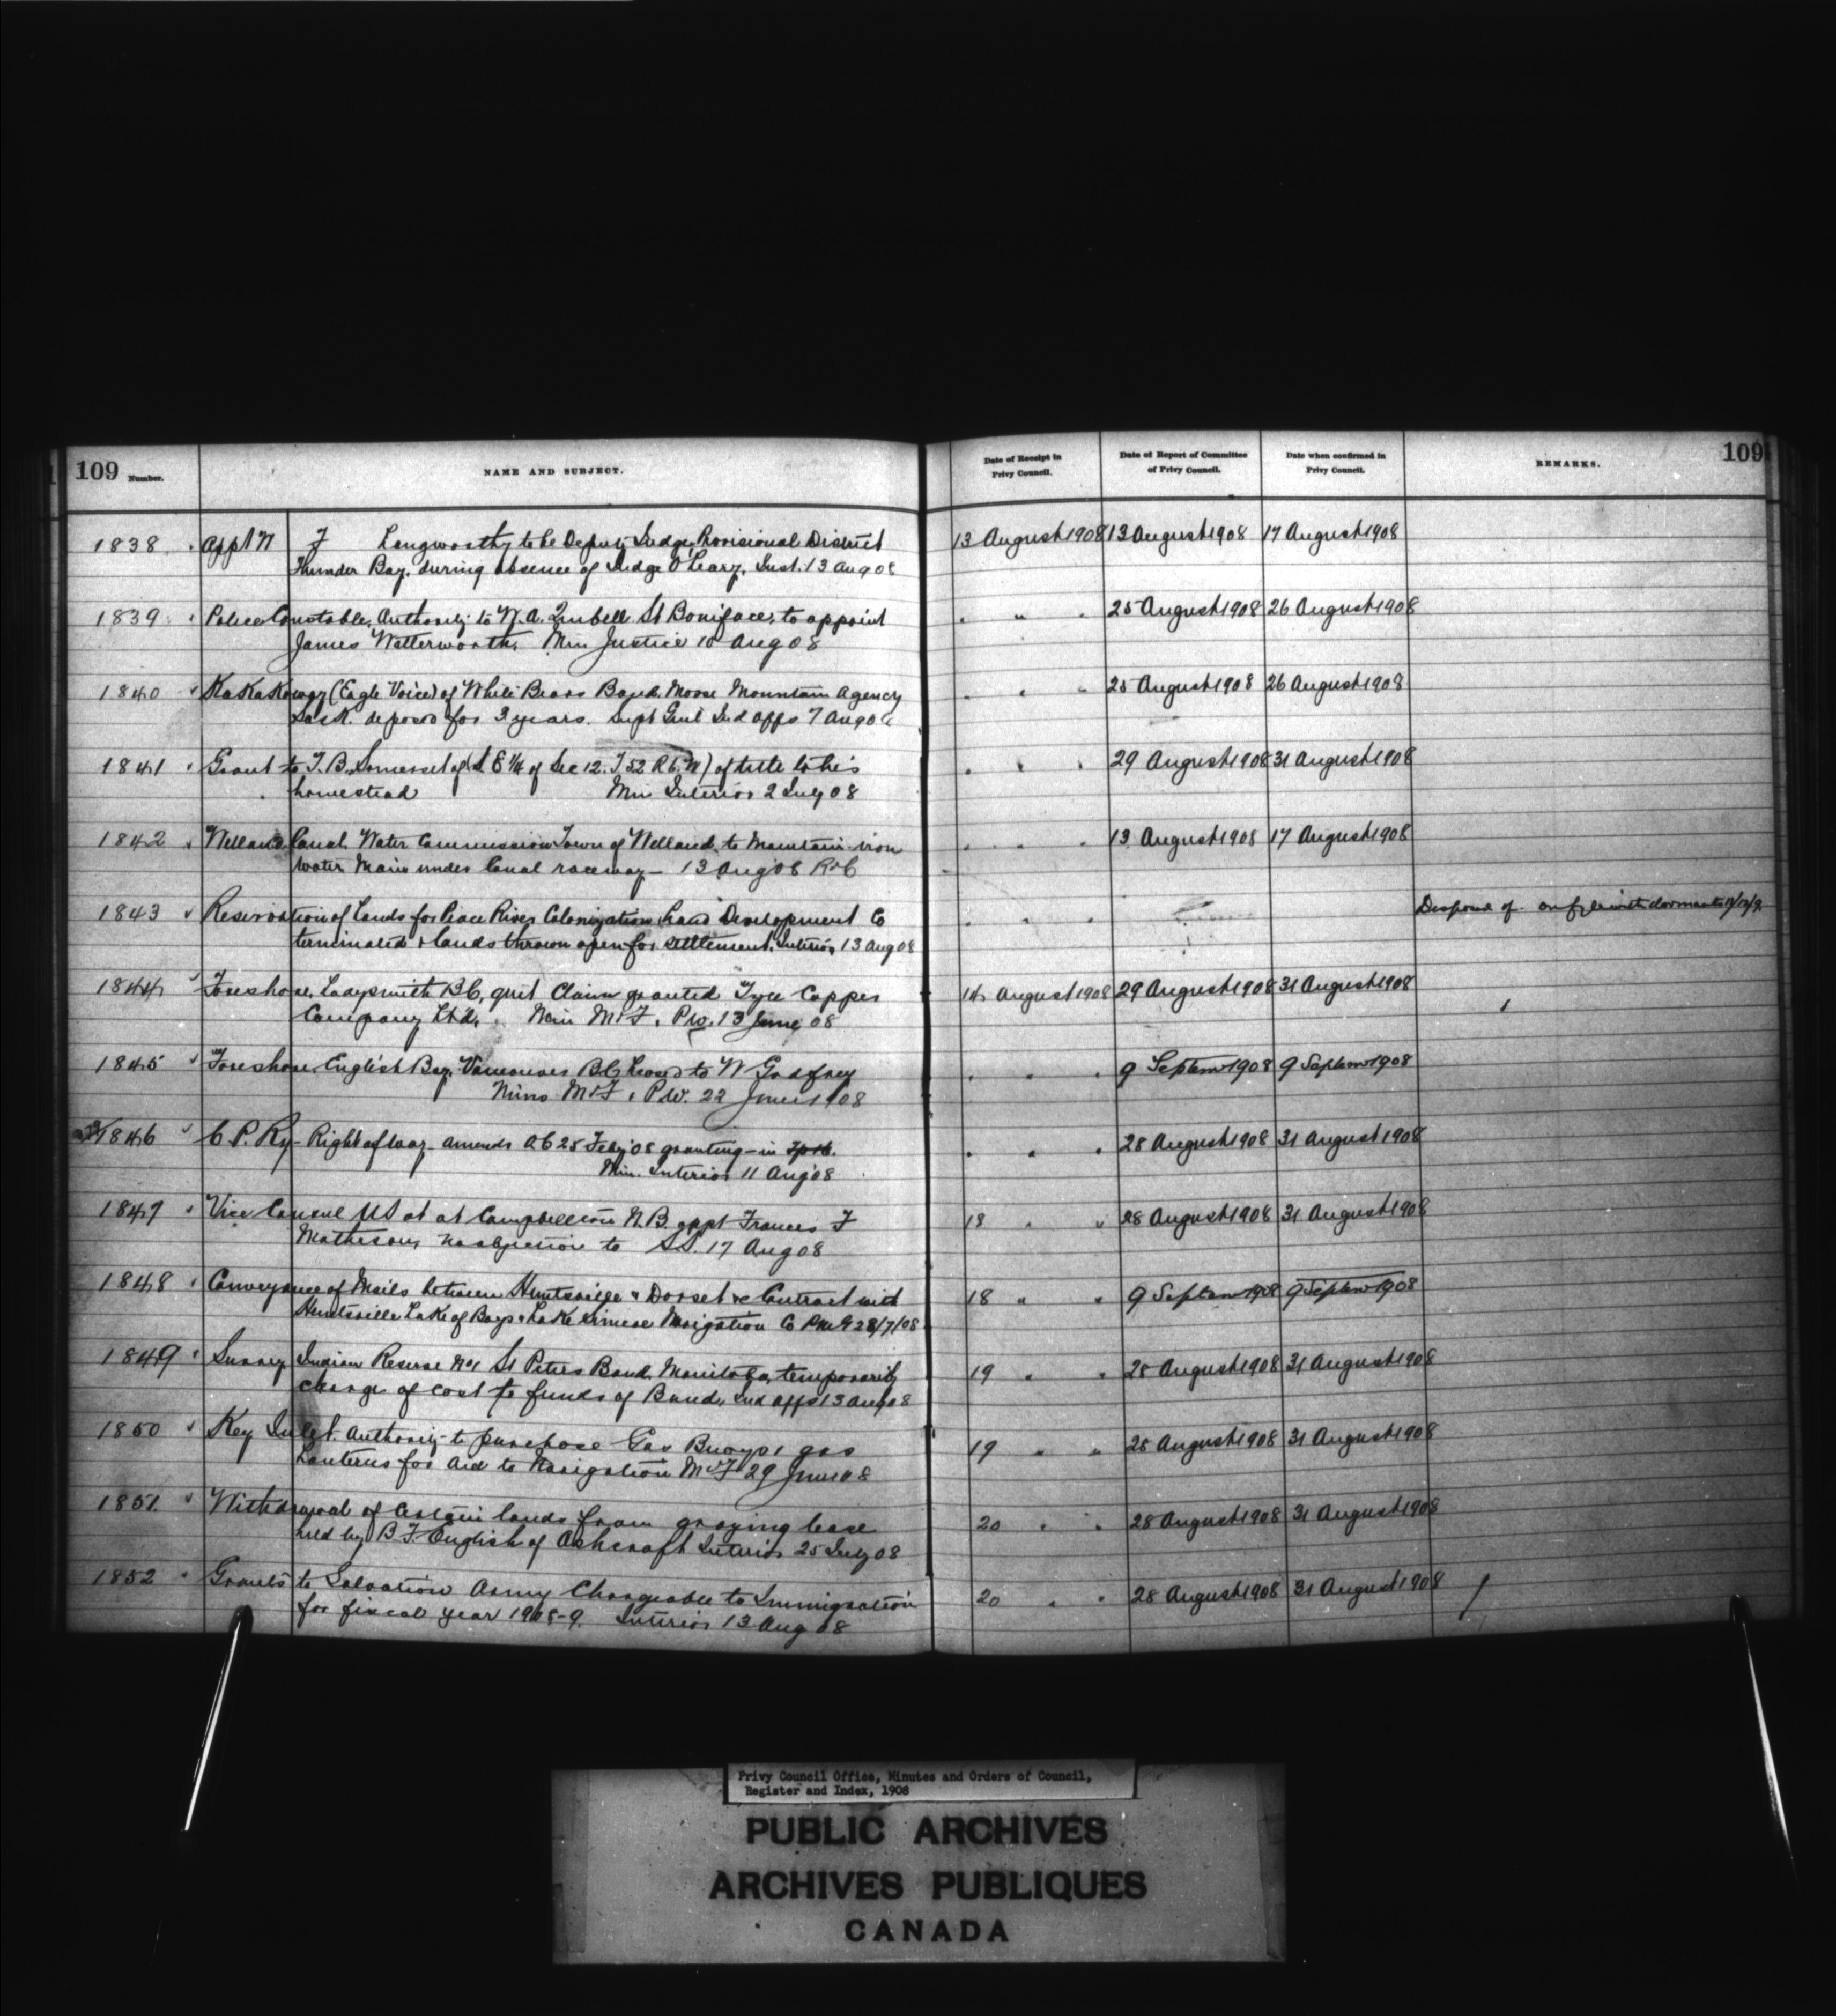 109 Number. NAME AND SUBJECT. Date of Receipt in Privy Council. Date of Report of Committee of Privy Council. Date when confirmed in Privy Council. REMARKS. 109
1838 Appt W F Langworthy to be Deputy Judge Provisional District 13 August 1908 13 August 1908 17 August 1908
Thunder Bay, during absence of Judge O'Leary, Just. 13 Aug 08
1839 Police Constable, Authority to N. A. St Boniface, to appoint " " " 25 August 1908 26 August 1908
James Watterworth, Min Justice 10 Aug 08
1840 KaKaKeway (Eagle Voice) of White Bears Band, Moose Mountain Agency " " " 25 August 1908 26 August 1908
Sask. deposed for 3 years. Supt Genl Ind Affs 7 Aug 08
1841 Grant to T. B. Somerset of (S E ¼ of Sec 12. T 52 R 6. W) of title to his " " " 29 August 1908 31 August 1908
homestead Min Interior 2 July 08
1842 Welland Canal. Water Commission Town of Welland, to Maintain iron " " " 13 August 1908 17 August 1908
Water Main under Canal raceway - 13 Aug 08 R&C
1843 Reservation of Lands for Peace River Colonization Land Development Co " " " Disposed of
terminated & lands thrown open for settlement. Interior 13 Aug 08
1844 Foreshore, Ladysmith B C, quit Claim granted Tyee Copper 14 August 1908 29 August 1908 31 August 1908
Company Ltd. Min M&F, P W. 13 June 08
1845 Foreshore English Bay, Vancouver B C Lease to W Godfrey " " " 9 Septem 1908 9 Septem 1908
Mins M&F, P W. 22 June 1908
1846 C P. Ry - Right of Way - amends O C 25 Feby '08 granting - in " " " 28 August 1908 31 August 1908
Min. Interior 11 Aug 08
1847 Vice Consul U S at at Campbellton N. B. appt Frances F 18 " " 28 August 1908 31 August 1908
Matheson, no objection to SS. 17 Aug 08
1848 Conveyance of Mails between Huntsville & Dorset &c Contract with 18 " " 9 Septem 1908 9 Septem 1908
Huntsville Lake of Bays & Lake Simcoe Navigation Co PMG 28/7/08
1849 Survey Indian Reserve No 1 St Peters Band, Manitoba, temporarily 19 " " 28 August 1908 31 August 1908
charge of cost to funds of Band, Ind Affs 13 Aug 08
1850 Key Inlet. Authority to purchase Gas Buoys & gas 19 " " 28 August 1908 31 August 1908
Lanterns for Aid to Navigation M&F 29 June 08
1851 Withdrawal of Certain lands from grazing lease 20 " " 28 August 1908 31 August 1908
held by B F. English of Ashcroft Interior 25 July 08
1852 Grants to Salvation Army Chargeable to Immigration 20 " " 28 August 1908 31 August 1908
for fiscal year 1908-9. Interior 13 Aug 08
Privy Council Office, Minutes and Orders of Council,
Register and Index, 1908
PUBLIC ARCHIVES
ARCHIVES PUBLIQUES
CANADA